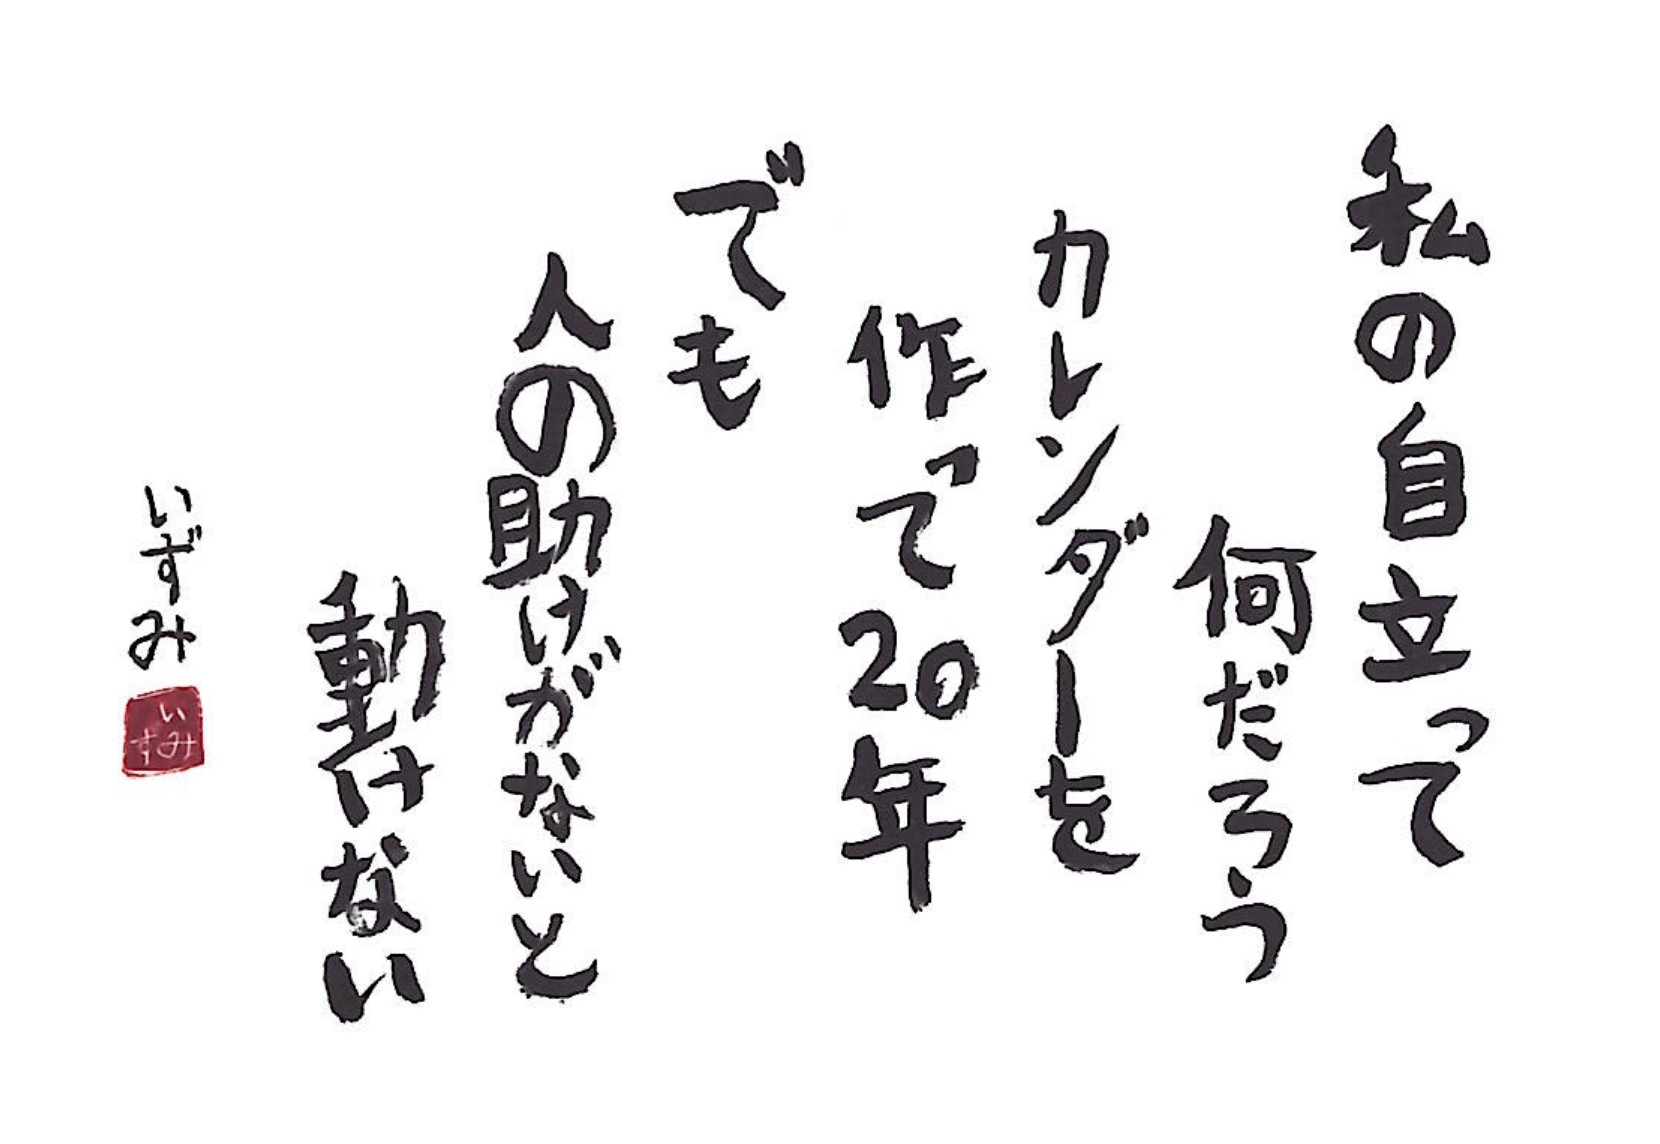 私の自立って
何だろう
カレンダーを
作って20年
でも
人の助けがないと
動けない
いずみ
いずみ